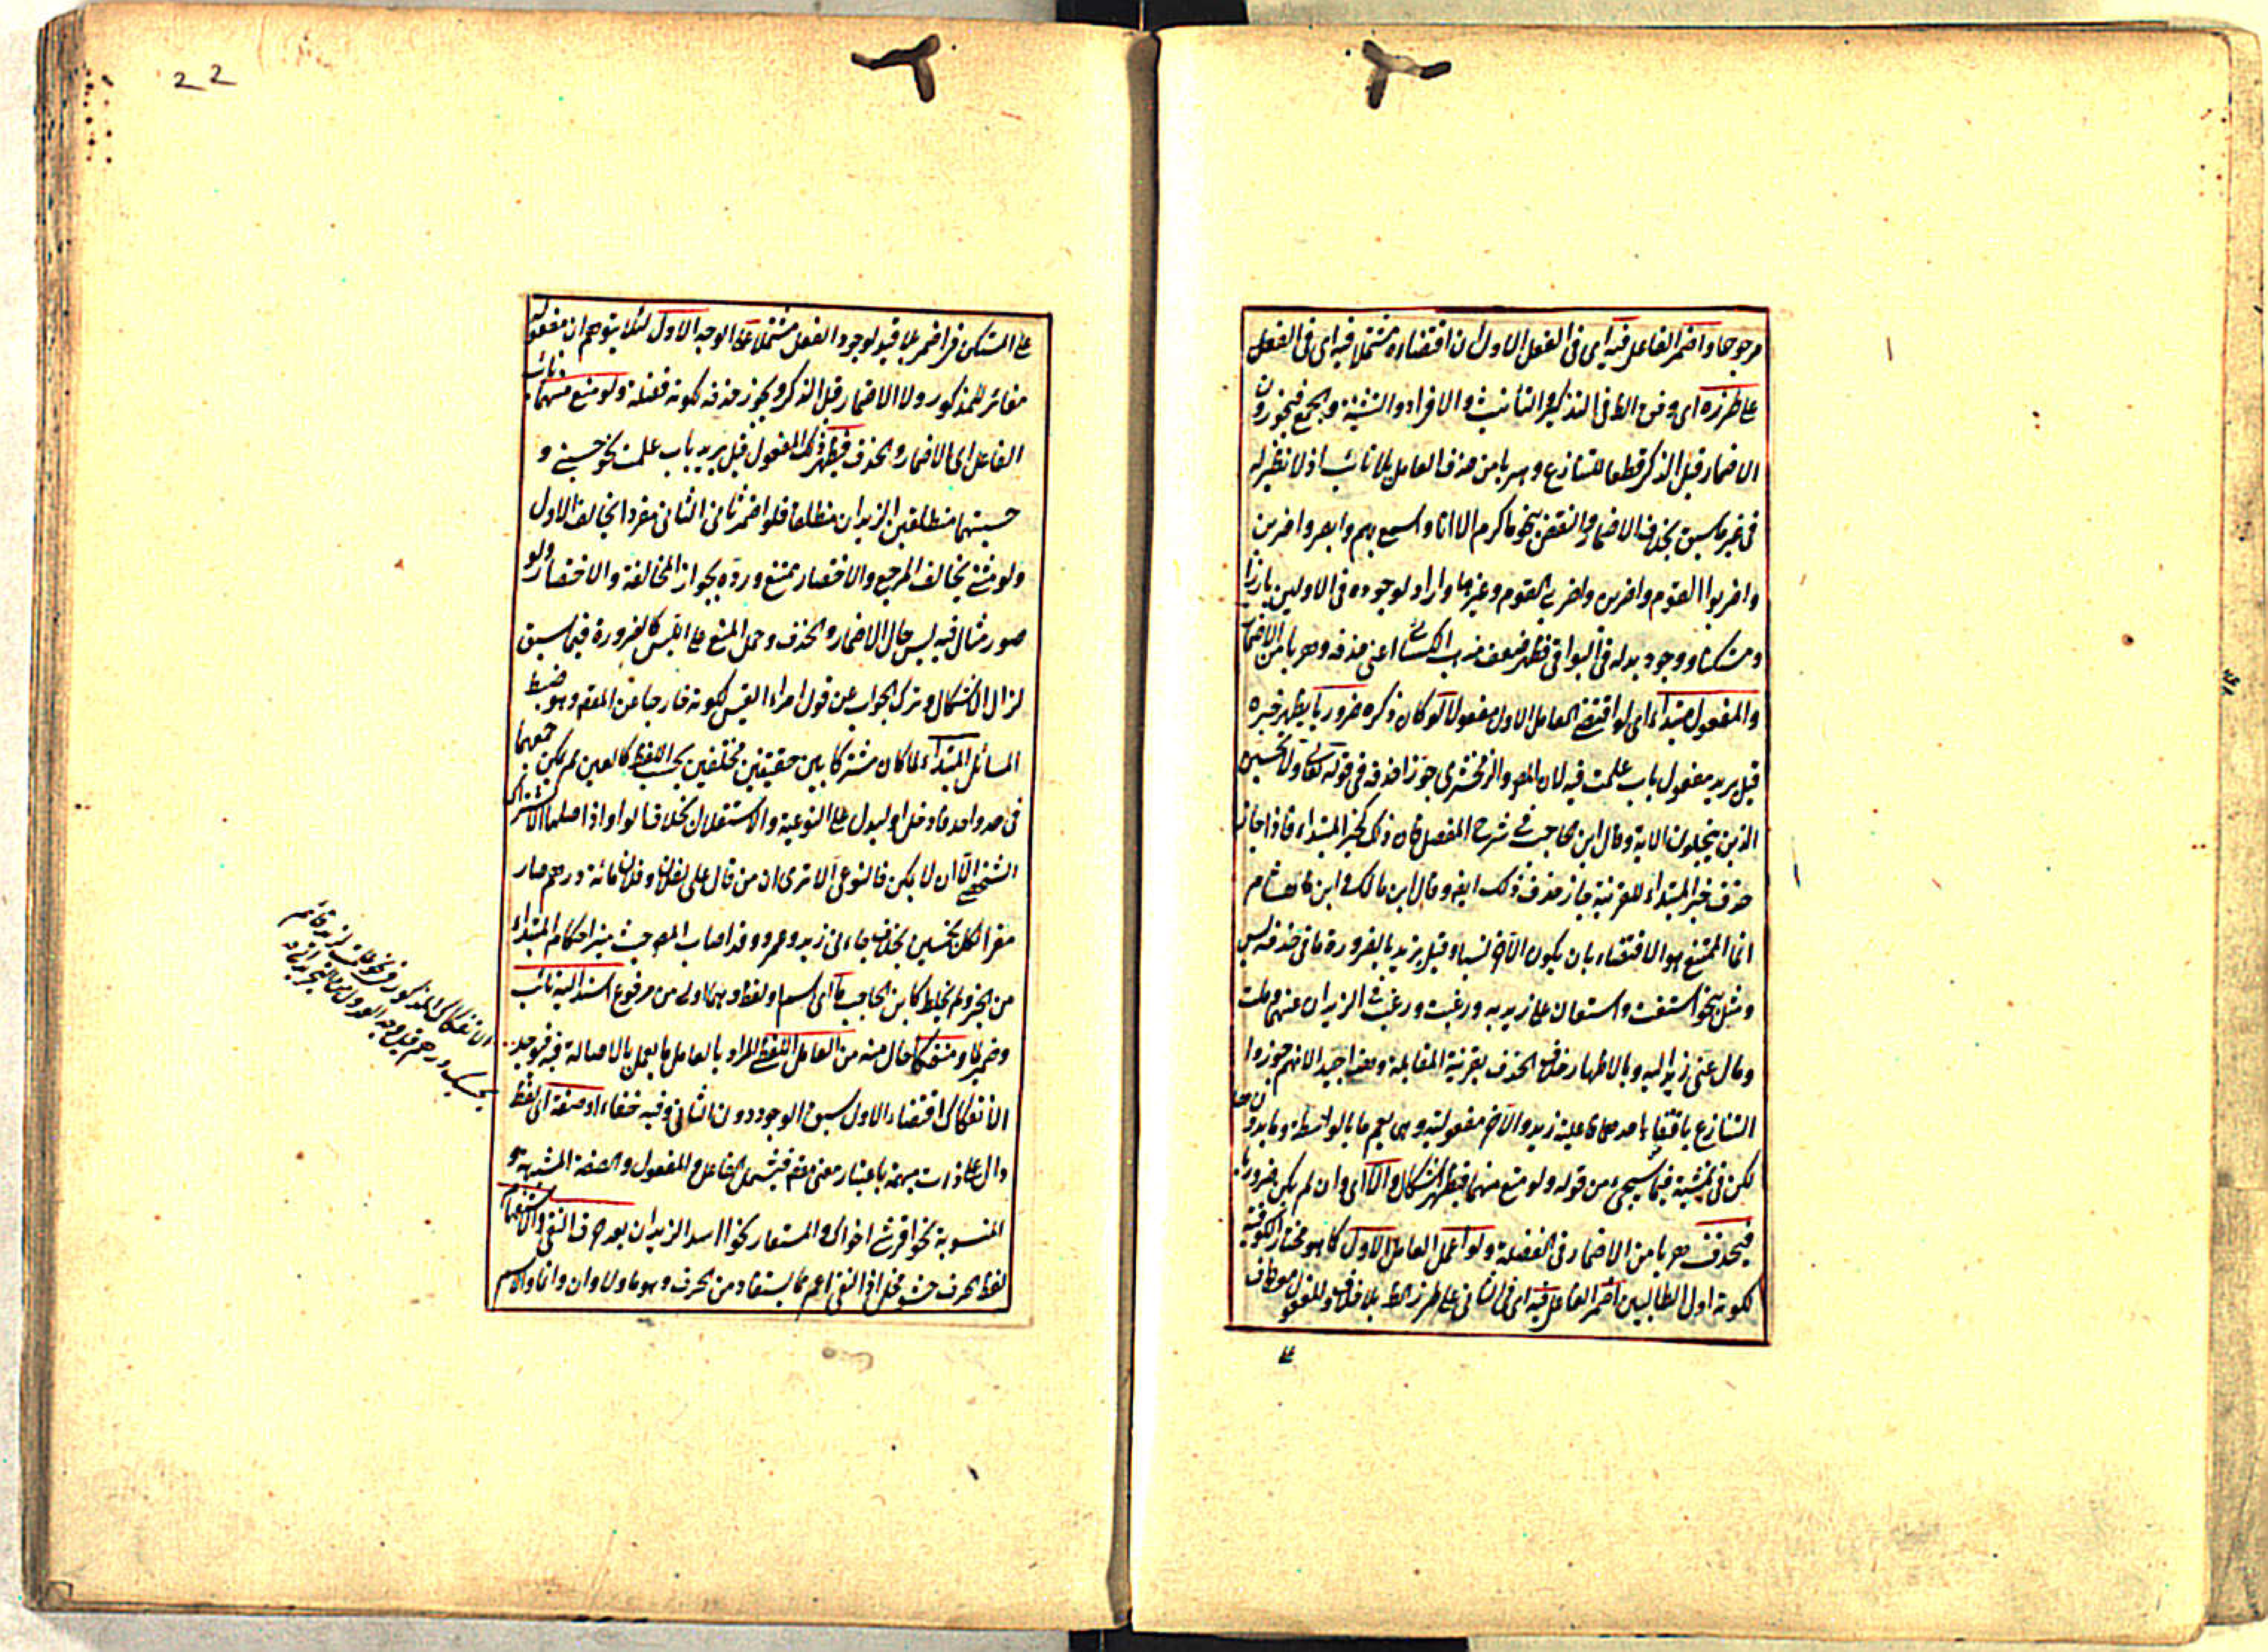 مرجوحا واضمر الفاعل فيه اى فى الفعل الاول ان اقتضاه مشتملا فيه اى فى الفعل
على طرزه اى وفق الظ فى التذكير والتانيث والافراد والتثنية والجمع فيجوزون
الاضمار قبل الذكر قطعا للتنازع وهربا من حذف العامل بلا نائب اذ لا نظير له
فى غير ما سبق بخلاف الاضمار والنقض بنحو ما كرم الا انا واسمع بهم وابصر واضربن
واضربوا القوم واضربن واضربى القوم وغيرها وارد لوجوده فى الاولين بارزا
ومستكنا ووجود بدله فى البواقى فظهر ضعف مذهب الكسائى اعنى حذفه وهربا من الاضمار
والمفعول مبتداء اى لو اقتضى العامل الاول مفعولا لو كان ذكره ضروريا يظهر خبره
قيل يريد مفعول باب علمت فيه لان المص والزمخشرى جوزا حذفه فى قوله تعالى ولا تحسبن
الذين يبخلون الاية وقال ابن الحاجب فى شرح المفصل كان ذلك كخبر المبتداء فاذا جاز
حذف خبر المبتداء للقرينة جاز حذف ذلك ايضا وقال ابن مالك وابن هشام
انما الممتنع هو الاقتضاء بان يكون الآخر نسيا وقيل يريد بالضرورة ما فى حذفه لبس
ومثل بنحو استعنت واستعان على زيد به ورغبت ورغب فى الزيدان عنهما وملت
ومال عنى زيد اليه وبالاظهار خلاف الحذف بقرينة المقابلة ومعنى اجيد الا انهم جوزوا
التنازع باقتفاء احدهما فاعلية زيد والآخر مفعوليته وهى يعم ما بالواسطة وما بدونها
لكن فى تمشيته فيما سيجىء من قوله ولو منع منهما فيظهر اشكال والا اى وان لم يكن ضروريا
فيحذف هربا من الاضمار فى الفضلة ولو اعمل العامل الاول كما هو مختار الكوفية
لكونه اول الطالبين اضمر الفاعل فيه اى فى الثانى على طرز الظ بلا خلاف والمفعول معطوف
على
22
على المستكن فى اضمر بما فيه لوجود الفعل مشتملا على الوجه الاول لئلا يتوهم ان مفعوله
مغائر للمذكور ولا الاضمار قبل الذكر ويجوز حذفه لكونه فضلة ولو منع منهما
الفاعل اى الاضمار والحذف فيظهر ذلك المفعول قيل يريد باب علمت نحو حسبنى و
حسبتهما منطلقين الزيدان منطلقا فلو اضمر ثانى الثانى مفردا يخالف الاول
ولو مثنى يخالف المرجع والاختصار يمتنع ورده بجواز المخالفة والاختصار ولو
صور مثال فيه لبس حال الاضمار والحذف وحمل المنع على اللبس كالضرورة فيما سبق
لزال الاشكال وترك الجواب عن قول امرء القيس لكونه خارجا عن المقص وهو ضبط
المسائل المبتداء لما كان مشتركا بين حقيقتين مختلفين بحسب اللفظ كالعين لم يمكن جمعهما
فى حد واحد فادخل او ليدل على النوعية والاستقلال بخلاف الواو اذ اصلها الاشتراك
الشخصى الا ان لا يمكن فالنوعى الا ترى ان من قال على لفلان وفلان مائة درهم صار
مقرا لكل بخمسين بخلاف جاءنى زيد وعمرو وقد اصاب المص حيث ميز احكام المبتداء
من الخبر ولم يخلط كابن الحاجب ما اى اسم او لفظ وهما اولى من مرفوع اسند اليه نائب
وضمير او منفكا حال منه من العامل اللفظى المراد بالعامل ما يعمل بالاصالة فيه فيوجد
الانفكاك اقتضاء الاول سبق الوجود دون الثانى وفيه خفاء او صفة اى لفظ
دال على ذات مبهمة باعتبار معنى معتم فيشمل الفاعل والمفعول والصفة المشبهة و
المنسوبة نحو اقرشى اخواك والمستعار نحو أاسد الزيدان بعد حرف النفى والاستفهام
لفظ الحرف حشو مخل اذ النفى اعم مما يستفاد من الحرف وهو ما ولا وان وانما والاسم